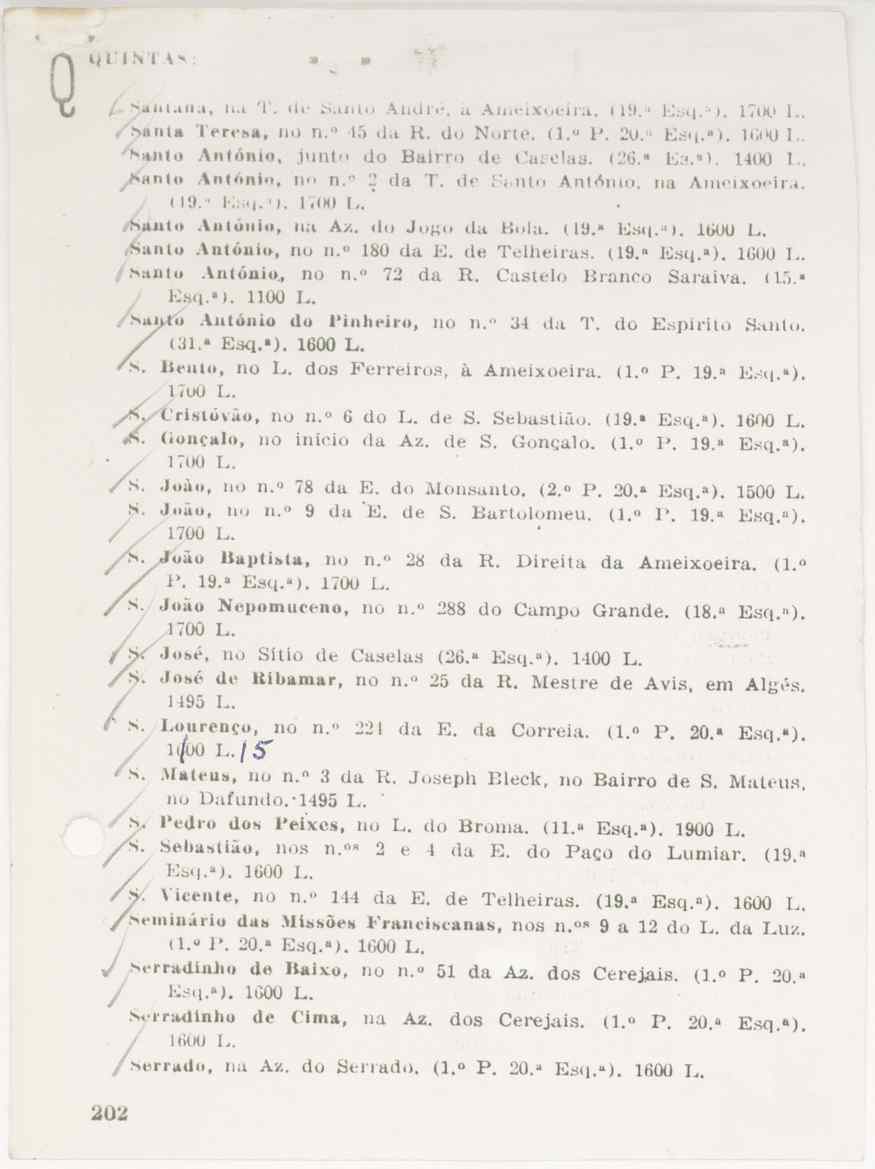 Q QUINTAS:
Santana, na T. de Santo André, à Ameixoeira. (19.ª Esq.ª). 1700 L.
Santa Teresa, no n.º 45 da R. do Norte. (1.º P. 20.ª Esq.ª). 1600 L.
Santo António, junto do Bairro de Caselas. (26.ª Es.ª). 1400 L.
Santo António, no n.º 2 da T. de Santo António, na Ameixoeira.
(19.ª Esq.ª). 1700 L.
Santo António, na Az. do Jogo da Bola. (19.ª Esq.ª). 1600 L.
Santo António, no n.º 180 da E. de Telheiras. (19.ª Esq.ª). 1600 L.
Santo António, no n.º 72 da R. Castelo Branco Saraiva. (15.ª
Esq.ª). 1100 L.
Santo António do Pinheiro, no n.º 34 da T. do Espírito Santo.
(31.ª Esq.ª). 1600 L.
S. Bento, no L. dos Ferreiros, à Ameixoeira. (1.º P. 19.ª Esq.ª).
1700 L.
S. Cristóvão, no n.º 6 do L. de S. Sebastião. (19.ª Esq.ª). 1600 L.
S. Gonçalo, no início da Az. de S. Gonçalo. (1.º P. 19.ª Esq.ª).
1700 L.
S. João, no n.º 78 da E. do Monsanto. (2.º P. 20.ª Esq.ª). 1500 L.
S. João, no n.º 9 da E. de S. Bartolomeu. (1.º P. 19.ª Esq.ª).
1700 L.
S. João Baptista, no n.º 28 da R. Direita da Ameixoeira. (1.º
P. 19.ª Esq.ª). 1700 L.
S. João Nepomuceno, no n.º 288 do Campo Grande. (18.ª Esq.ª).
1700 L.
S. José, no Sítio de Caselas (26.ª Esq.ª). 1400 L.
S. José de Ribamar, no n.º 25 da R. Mestre de Avis, em Algés.
1495 L.
S. Lourenço, no n.º 224 da E. da Correia. (1.º P. 20.ª Esq.ª).
1600 L. /5
S. Mateus, no n.º 3 da R. Joseph Bleck, no Bairro de S. Mateus,
no Dafundo. 1495 L.
S. Pedro dos Peixes, no L. do Broma. (11.ª Esq.ª). 1900 L.
S. Sebastião, nos n.ºs 2 e 4 da E. do Paço do Lumiar. (19.ª
Esq.ª). 1600 L.
S. Vicente, no n.º 144 da E. de Telheiras. (19.ª Esq.ª). 1600 L.
Seminário das Missões Franciscanas, nos n.ºs 9 a 12 do L. da Luz.
(1.º P. 20.ª Esq.ª). 1600 L.
Serradinho de Baixo, no n.º 51 da Az. dos Cerejais. (1.º P. 20.ª
Esq.ª). 1600 L.
Serradinho de Cima, na Az. dos Cerejais. (1.º P. 20.ª Esq.ª).
1600 L.
Serrado, na Az. do Serrado. (1.º P. 20.ª Esq.ª). 1600 L.
202